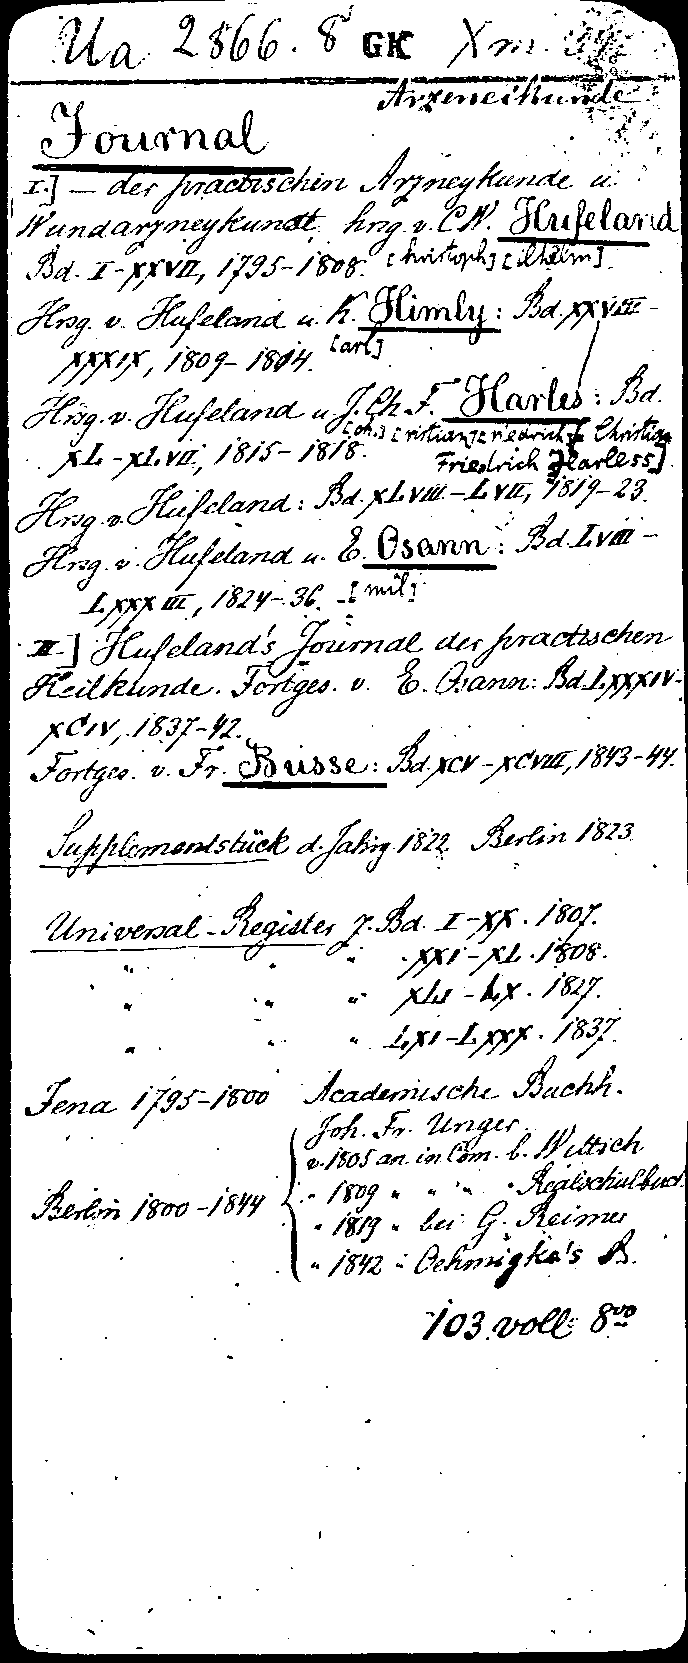 Ua 2866. 8° GK Xm.
Arzeneikunde
Journal
I.] — der practischen Arzneykunde u.
Wundarzneykunst, hrsg. v. C.W. Hufeland
[hristoph] [ilhelm]
Bd. I-XXVII, 1795-1808.
Hrsg. v. Hufeland u. K. Himly: Bd. XXVIII-
[arl]
XXXIX, 1809-1814.
Hrsg. v. Hufeland u. J. Ch. F. Harles: Bd.
[oh.] [ristian] [riedrich] [= Christian
Friedrich Harless]
XL-XLVII, 1815-1818.
Hrsg. v. Hufeland: Bd. XLVIII-LVII, 1819-23.
Hrsg. v. Hufeland u. E. Osann: Bd. LVIII-
[mil]
LXXXIII, 1824-36.
II.] Hufeland's Journal der practischen
Heilkunde. Fortges. v. E. Osann: Bd. LXXXIV-
XCIV, 1837-42.
Fortges. v. Fr. Busse: Bd. XCV-XCVIII, 1843-44.
Supplementstück d. Jahrg. 1822. Berlin 1823.
Universal-Register z. Bd. I-XX. 1807.
" " " XXI-XL. 1808.
" " " XLI-LX. 1827.
" " " LXI-LXXX. 1837.
Jena 1795-1800 Academische Buchh.
Joh. Fr. Unger.
v. 1805 an in Com. b. Wittich
" 1809 " " " " Realschulbuch
Berlin 1800-1844
" 1819 " bei G. Reimer
" 1842 " Oehmigke's B.
103 voll. 8vo